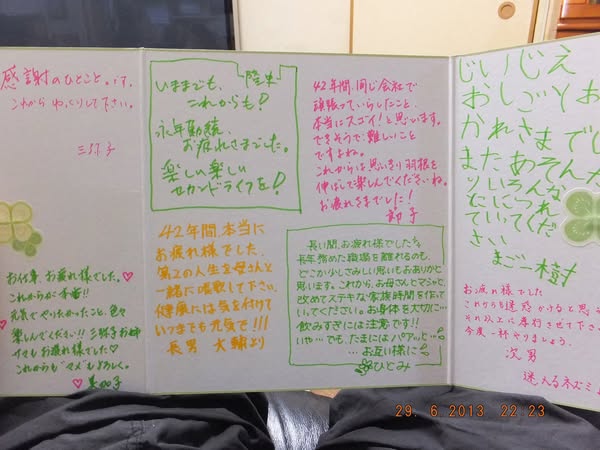 感謝のひとこと。です。
これからゆっくりして下さい。
三弥子
お仕事、お疲れ様でした。♡
これからが本番!!
元気でやりたかったこと、色々
楽しんでください!! 三弥子お姉
サマもお疲れ様でした♡
これからも"マメ"もよろしく。
子
いままでも、陸史
これからも!
永年勤続、
お疲れさまでした。
楽しい楽しい
セカンドライフを!
42年間、本当に
お疲れ様でした。
第2の人生を母さんと
一緒に満喫して下さい。
健康には気を付けて
いつまでも元気で!!!
長男 大輔より
42年間、同じ会社で
頑張っていらしたこと、
本当にスゴイ!と思います。
できそうで難しいこと
ですよね。
これからは思いきり羽根を
伸ばして楽しんでくださいね。
お疲れさまでした!
節子
長い間、お疲れ様でした
長年務めた職場を離れるのも、
どこか少しさみしい思いもおありかと
思います。これから、お母さんとマシャと、
改めてステキな家族時間を作って
いってください。お身体を大切に…
飲みすぎには注意です!!
いや…でも、たまにはパアッと…
…お互い様に
ひとみ
じいじえ
おしごとお
かれさまでし
またあそんだ
りいろんな
なにつれ
ていってくだ
さい
まご一樹
お疲れ様でした
これからも迷惑かけると思う
それ以上に孝行させて下さい
今度一杯やりましょう。
次男
迷える
29. 6. 2013 22 23